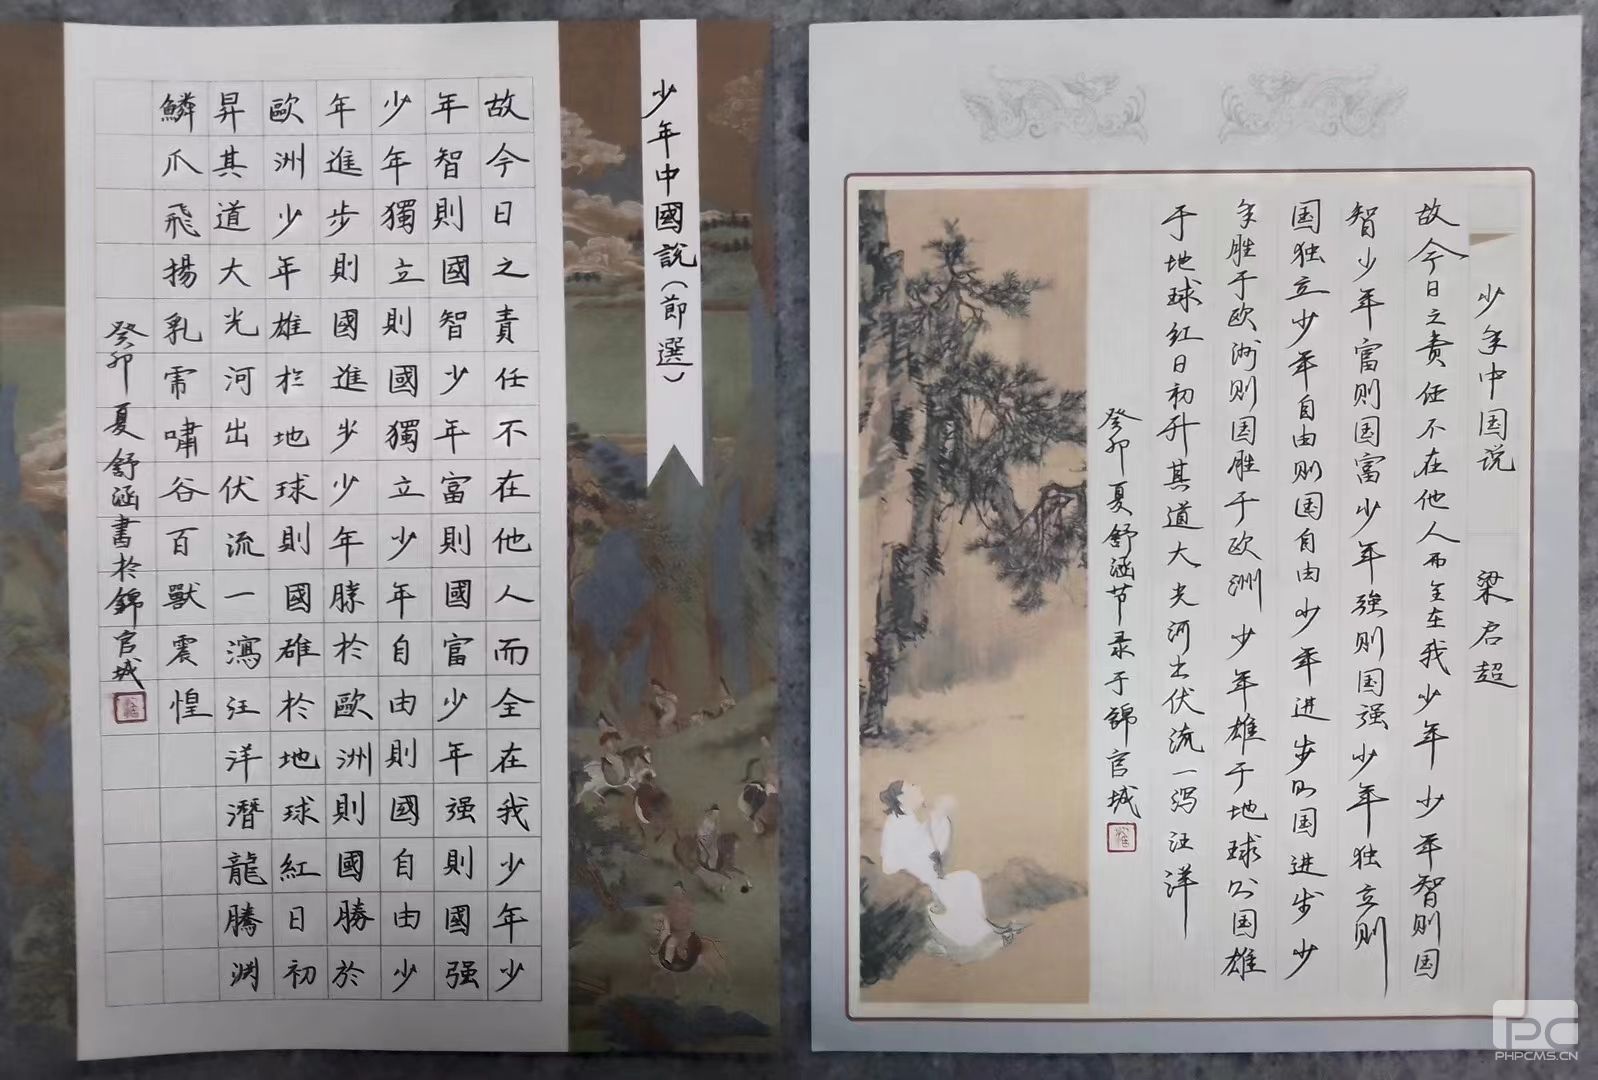 少年中國說（節選）
故今日之責任不在他人而全在我少年少
年智則國智少年富則國富少年强則國强
少年獨立則國獨立少年自由則國自由少
年進步則國進步少年勝於歐洲則國勝於
歐洲少年雄於地球則國雄於地球紅日初
昇其道大光河出伏流一瀉汪洋潛龍騰渊
鱗爪飛揚乳虎嘯谷百獸震惶
癸卯夏舒涵書於錦官城
少年中国说 梁启超
故今日之责任不在他人而全在我少年少年智则国
智少年富则国富少年強则国强少年独立则
国独立少年自由则国自由少年进步则国进步少
年胜于欧洲则国胜于欧洲少年雄于地球则国雄
于地球红日初升其道大光河出伏流一泻汪洋
癸卯夏舒涵节录于錦官城
PC
PHPCMS.CN